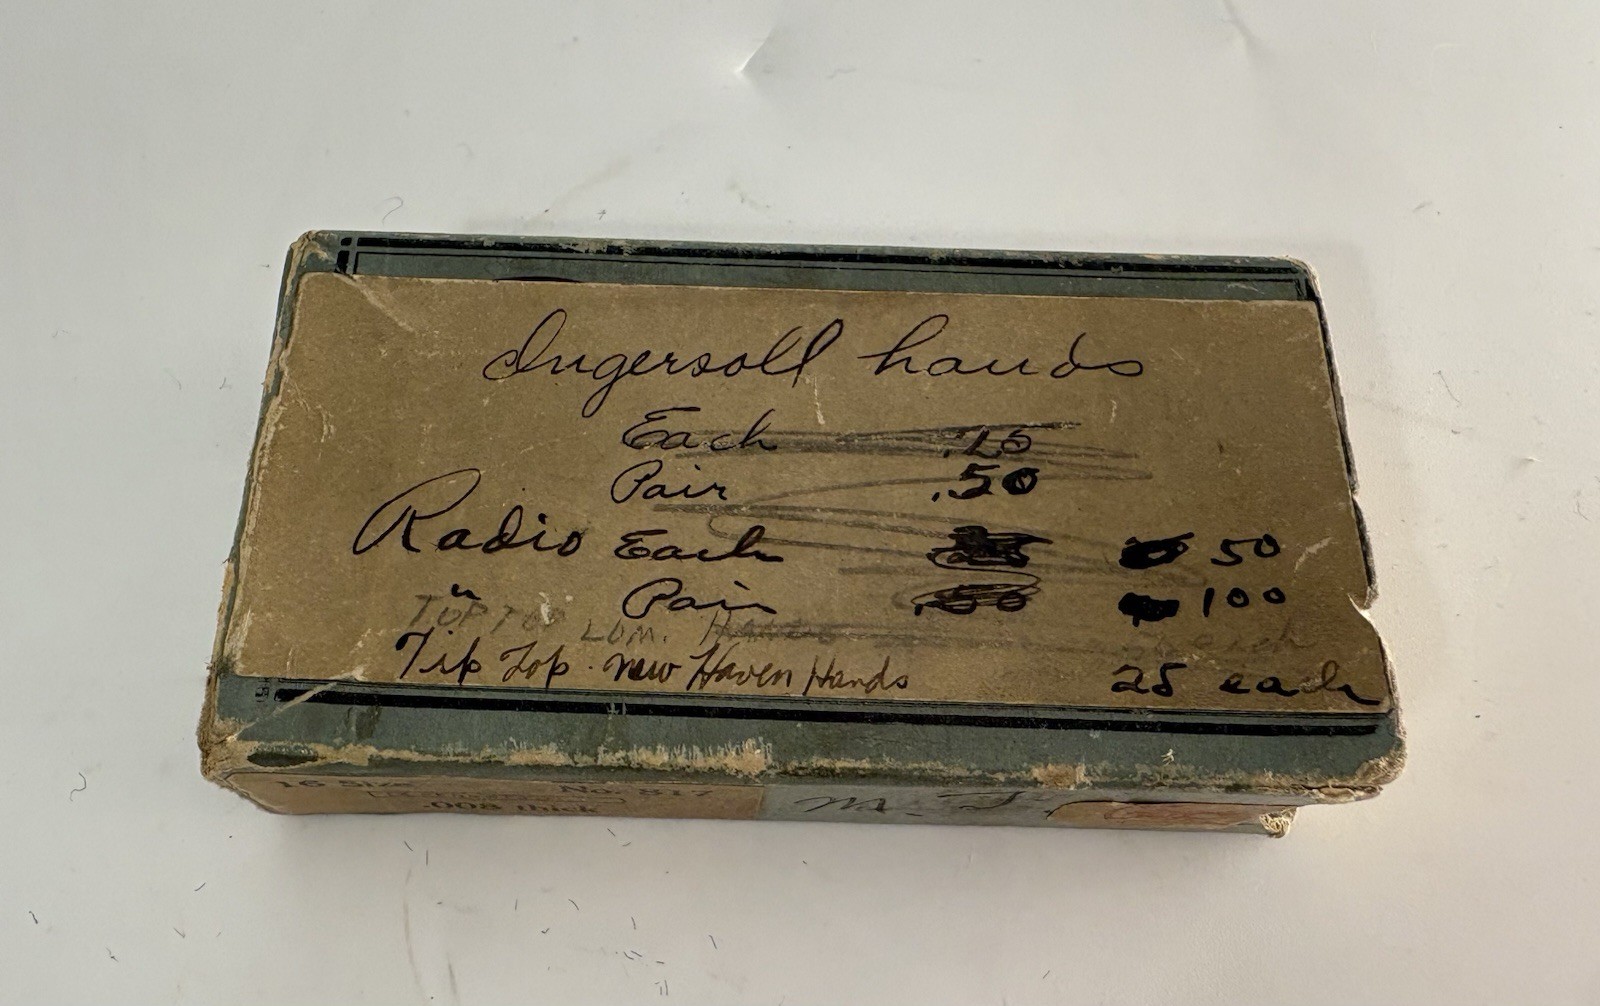 Ingersoll hands
Each .15
Pair .50
Radio Each 50
" Pair 100
TIP TOP HANDS each
Tip Top. New Haven Hands 25 each
16 Size No. 817
.008 thick